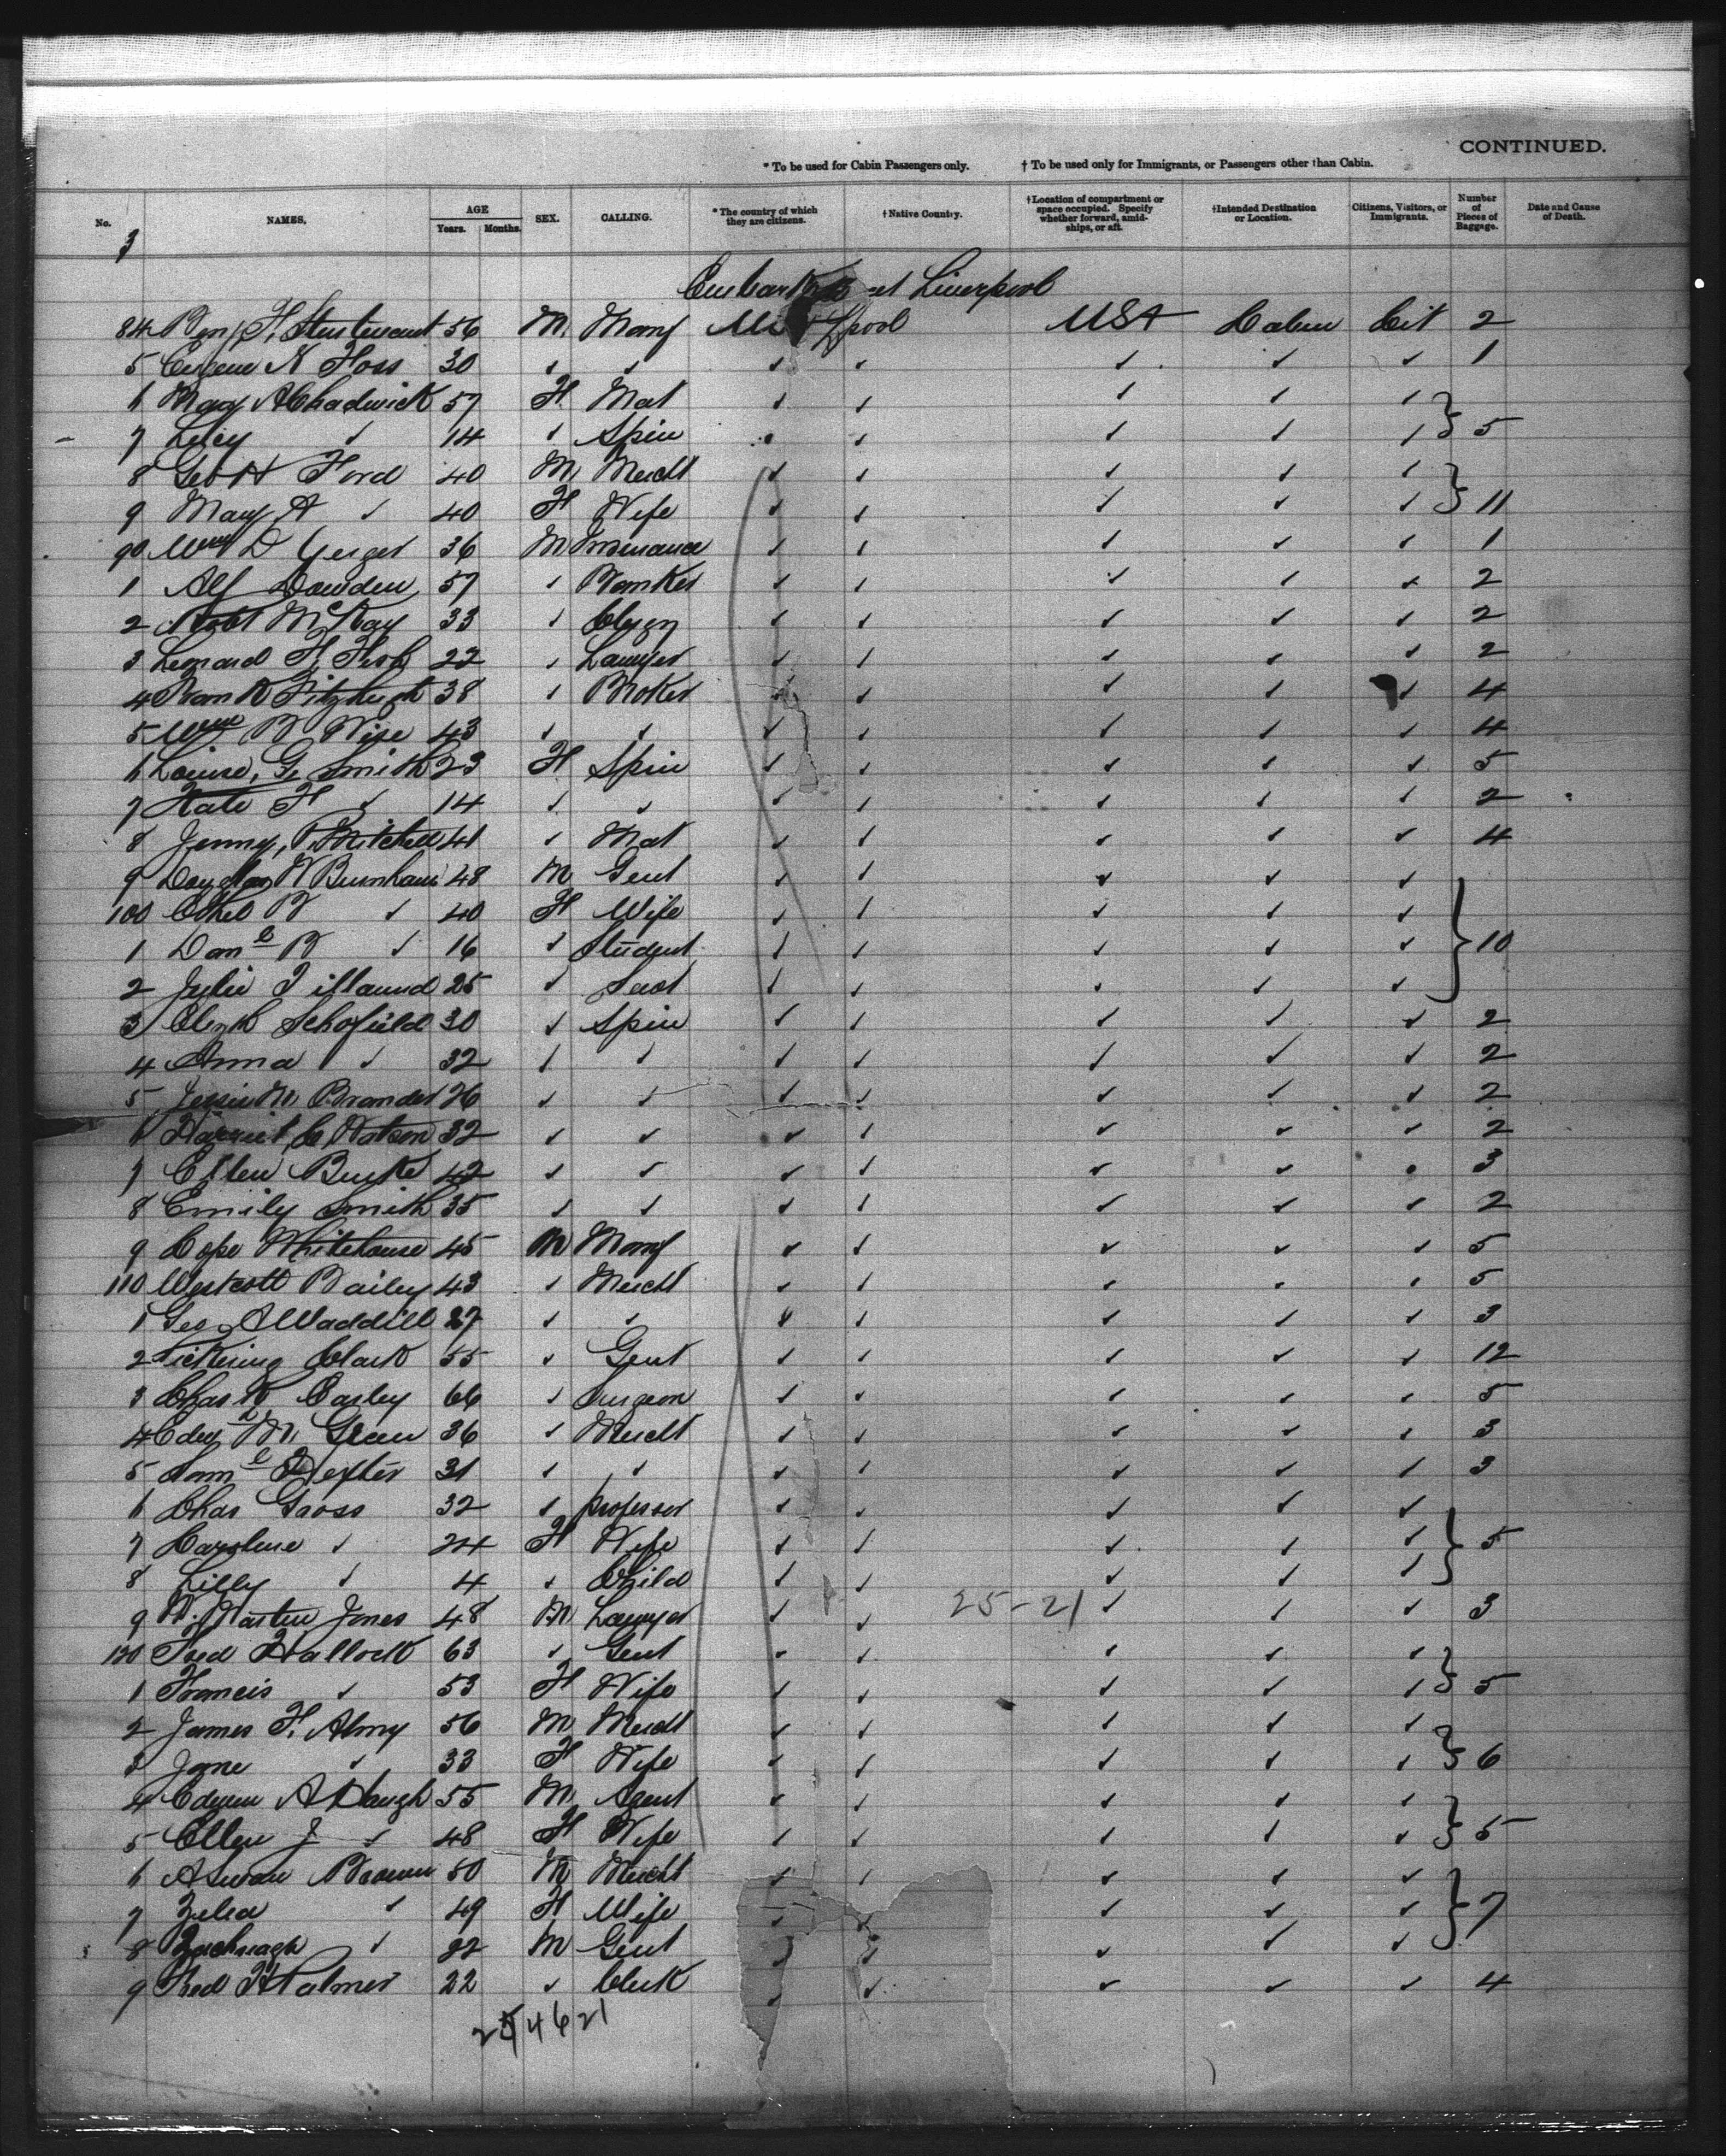 CONTINUED.
* To be used for Cabin Passengers only. † To be used only for Immigrants, or Passengers other than Cabin.
No. NAMES. AGE Years. Months. SEX. CALLING. * The country of which they are citizens. † Native Country. † Location of compartment or space occupied. Specify whether forward, amidships, or aft. † Intended Destination or Location. Citizens, Visitors, or Immigrants. Number of Pieces of Baggage. Date and Cause of Death.
3
at Liverpool
84 Benj F. Sturtevant 56 M. Manf Lpool USA Cit 2
5 Eugene N Foss 30 ✓ ✓ ✓ ✓ ✓ ✓ ✓ 1
6 Mary A Chadwick 57 F. Mat ✓ ✓ ✓ ✓ ✓
7 Lucy ✓ 14 ✓ Spin ✓ ✓ ✓ ✓ ✓ } 5
8 Geo H Ford 40 M Mercht ✓ ✓ ✓ ✓ ✓
9 Mary A ✓ 40 F Wife ✓ ✓ ✓ ✓ ✓ } 11
90 Wm D Yerger 36 M Insurance ✓ ✓ ✓ ✓ ✓ 1
1 Alf Dowden 57 ✓ Banker ✓ ✓ ✓ ✓ ✓ 2
2 Robt McKay 33 ✓ Clergy ✓ ✓ ✓ ✓ ✓ 2
3 Leonard F. 22 ✓ Lawyer ✓ ✓ ✓ ✓ ✓ 2
4 Fitzhugh 38 ✓ Broker ✓ ✓ ✓ ✓ ✓ 4
5 Wm B Wise 43 ✓ ✓ ✓ ✓ ✓ ✓ ✓ 4
6 Louise, G. Smith 23 F Spin ✓ ✓ ✓ ✓ ✓ 5
7 Kate F ✓ 14 ✓ ✓ ✓ ✓ ✓ ✓ ✓ 2
8 Jenny, Mitchell 41 ✓ Mat ✓ ✓ ✓ ✓ ✓ 4
9 Burnham 48 M Gent ✓ ✓ ✓ ✓ ✓
100 Ethel B ✓ 40 F Wife ✓ ✓ ✓ ✓ ✓
1 Danl B ✓ 16 ✓ Student ✓ ✓ ✓ ✓ ✓ } 10
2 Julie 25 ✓ ✓ ✓ ✓ ✓ ✓
3 Elizth Schofield 30 ✓ Spin ✓ ✓ ✓ ✓ ✓ 2
4 Anna ✓ 32 ✓ ✓ ✓ ✓ ✓ ✓ ✓ 2
5 Jessie M 26 ✓ ✓ ✓ ✓ ✓ ✓ ✓ 2
6 Harriet C Watson 32 ✓ ✓ ✓ ✓ ✓ ✓ ✓ 2
7 Ellen Burke 42 ✓ ✓ ✓ ✓ ✓ ✓ ✓ 3
8 Emily Smith 35 ✓ ✓ ✓ ✓ ✓ ✓ ✓ 2
9 Cope Whitehouse 45 M Manf ✓ ✓ ✓ ✓ ✓ 5
110 Westcott Bailey 43 ✓ Mercht ✓ ✓ ✓ ✓ ✓ 5
1 Geo A Waddill 27 ✓ ✓ ✓ ✓ ✓ ✓ ✓ 3
2 Pickering Clark 55 ✓ Gent ✓ ✓ ✓ ✓ ✓ 12
3 Chas 66 ✓ Surgeon ✓ ✓ ✓ ✓ ✓ 5
4 Edwd M. 36 ✓ Mercht ✓ ✓ ✓ ✓ ✓ 3
5 Saml Dexter 31 ✓ ✓ ✓ ✓ ✓ ✓ ✓ 3
6 Chas Gross 32 ✓ professor ✓ ✓ ✓ ✓ ✓
7 Caroline ✓ 24 F Wife ✓ ✓ ✓ ✓ ✓ } 5
8 Lilly ✓ 4 ✓ Child ✓ ✓ ✓ ✓ ✓
9 W. Martin Jones 48 M Lawyer ✓ ✓ 25-21 ✓ ✓ ✓ 3
120 Fred Hallock 63 ✓ Gent ✓ ✓ ✓ ✓ ✓
1 Francis ✓ 53 F Wife ✓ ✓ ✓ ✓ ✓ } 5
2 James F. Almy 56 M Mercht ✓ ✓ ✓ ✓ ✓
3 Jane ✓ 33 F Wife ✓ ✓ ✓ ✓ ✓ } 6
4 55 M Agent ✓ ✓ ✓ ✓ ✓
5 Ellen J ✓ 48 F Wife ✓ ✓ ✓ ✓ ✓ } 5
6 Brown 50 M Mercht ✓ ✓ ✓ ✓ ✓
7 ✓ 49 F Wife ✓ ✓ ✓ ✓ ✓ } 7
8 ✓ 22 M Gent ✓ ✓ ✓ ✓ ✓
9 Fred 22 ✓ Clerk ✓ ✓ ✓ ✓ ✓ 4